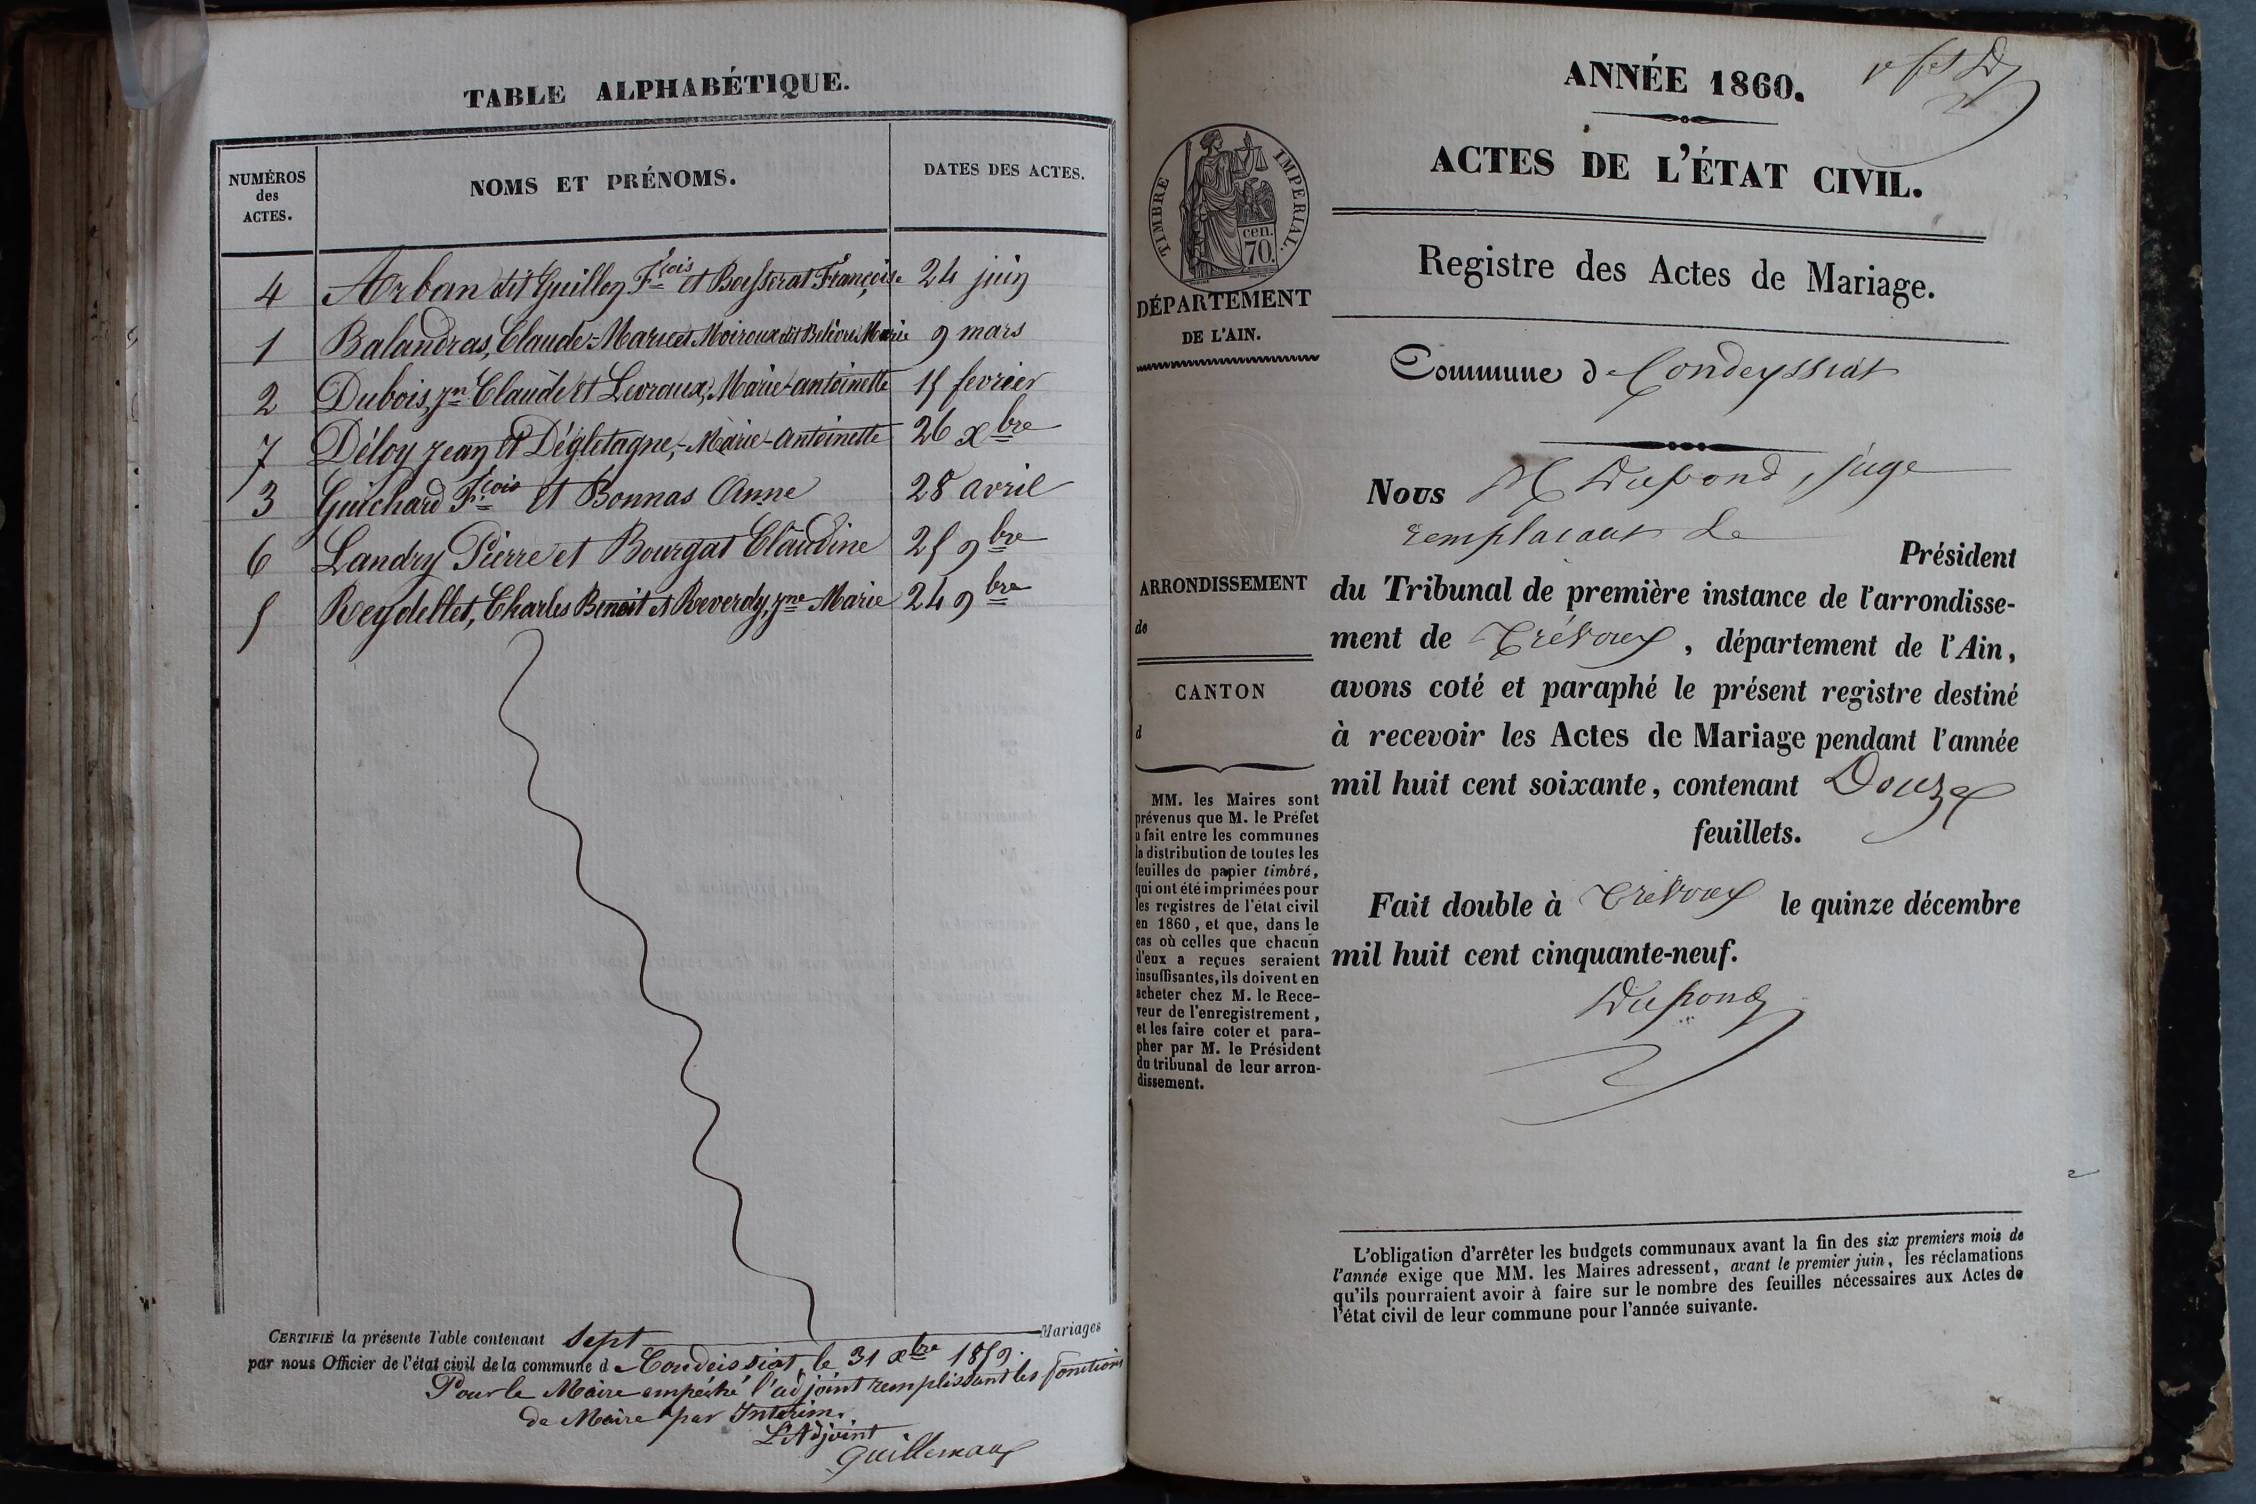 TABLE ALPHABÉTIQUE.
NUMÉROS des ACTES.
NOMS ET PRÉNOMS.
DATES DES ACTES.
4 Arban dit Guillon Fçois et Boisserat Françoise 24 juin
1 Balandras, Claude-Marie et Moiroux dit Belièvre Marie 9 mars
2 Dubois, Jn Claude et Levroux, Marie-antoinette 15 fevrier
7 Déloy Jean et Dégletagne, Marie-Antoinette 26 Xbre
3 Guichard Fçois et Bonnas Anne 28 avril
6 Landry Pierre et Bourgat Claudine 25 9bre
5 Reydellet, Charles Benoit et Reverdy, Jne Marie 24 9bre
CERTIFIÉ la présente Table contenant sept Mariages
par nous Officier de l'état civil de la commune de Condeissiat, le 31 Xbre 1859.
Pour le Maire empéché l'adjoint remplissant les fonctions
de Maire par Interim.
L'Adjoint
Guillemaux
ANNÉE 1860.
ACTES DE L'ÉTAT CIVIL.
TIMBRE IMPERIAL.
cen.
70.
DÉPARTEMENT
DE L'AIN.
Registre des Actes de Mariage.
Commune de Condeyssiat
Nous M Dupond, juge
remplacant le
Président
du Tribunal de première instance de l'arrondisse-
ment de Trévoux, département de l'Ain,
avons coté et paraphé le présent registre destiné
à recevoir les Actes de Mariage pendant l'année
mil huit cent soixante, contenant Douze
feuillets.
Fait double à Trévoux le quinze décembre
mil huit cent cinquante-neuf.
Dupond
ARRONDISSEMENT
de
CANTON
d
MM. les Maires sont
prévenus que M. le Préfet
a fait entre les communes
la distribution de toutes les
feuilles de papier timbré,
qui ont été imprimées pour
les registres de l'état civil
en 1860, et que, dans le
cas où celles que chacun
d'eux a reçues seraient
insuffisantes, ils doivent en
acheter chez M. le Rece-
veur de l'enregistrement,
et les faire coter et para-
pher par M. le Président
du tribunal de leur arron-
dissement.
L'obligation d'arrêter les budgets communaux avant la fin des six premiers mois de
l'année exige que MM. les Maires adressent, avant le premier juin, les réclamations
qu'ils pourraient avoir à faire sur le nombre des feuilles nécessaires aux Actes de
l'état civil de leur commune pour l'année suivante.